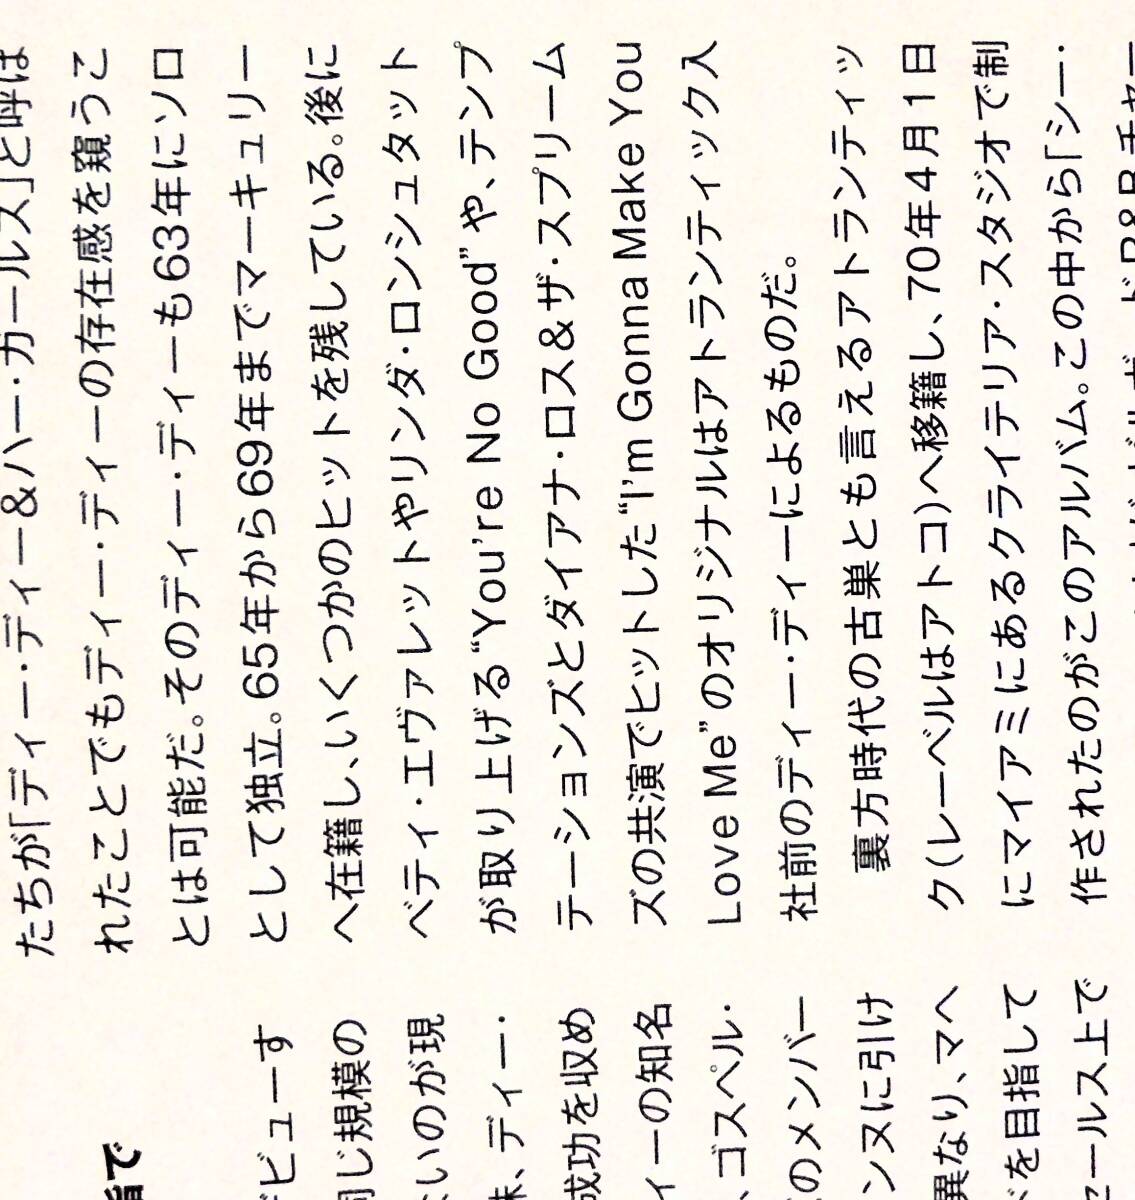 で
ビューす
同じ規模の
いのが現
妹、ディー・
成功を収め
ィーの知名
、ゴスペル・
のメンバー
ンヌに引け
異なり、マヘ
を目指して
ェールス上で
たちが「ディー・ディー&ハー・ガールズ」と呼ば
れたことでもディー・ディーの存在感を窺うこ
とは可能だ。そのディー・ディーも63年にソロ
として独立。65年から69年までマーキュリー
へ在籍し、いくつかのヒットを残している。後に
ベティ・エヴァレットやリンダ・ロンシュタット
が取り上げる“You're No Good”や、テンプ
テーションズとダイアナ・ロス&ザ・スプリーム
ズの共演でヒットした“I'm Gonna Make You
Love Me”のオリジナルはアトランティック入
社前のディー・ディーによるものだ。
裏方時代の古巣とも言えるアトランティッ
ク(レーベルはアトコ)へ移籍し、70年4月1日
にマイアミにあるクライテリア・スタジオで制
作されたのがこのアルバム。この中から「シー・
R&Bチャー